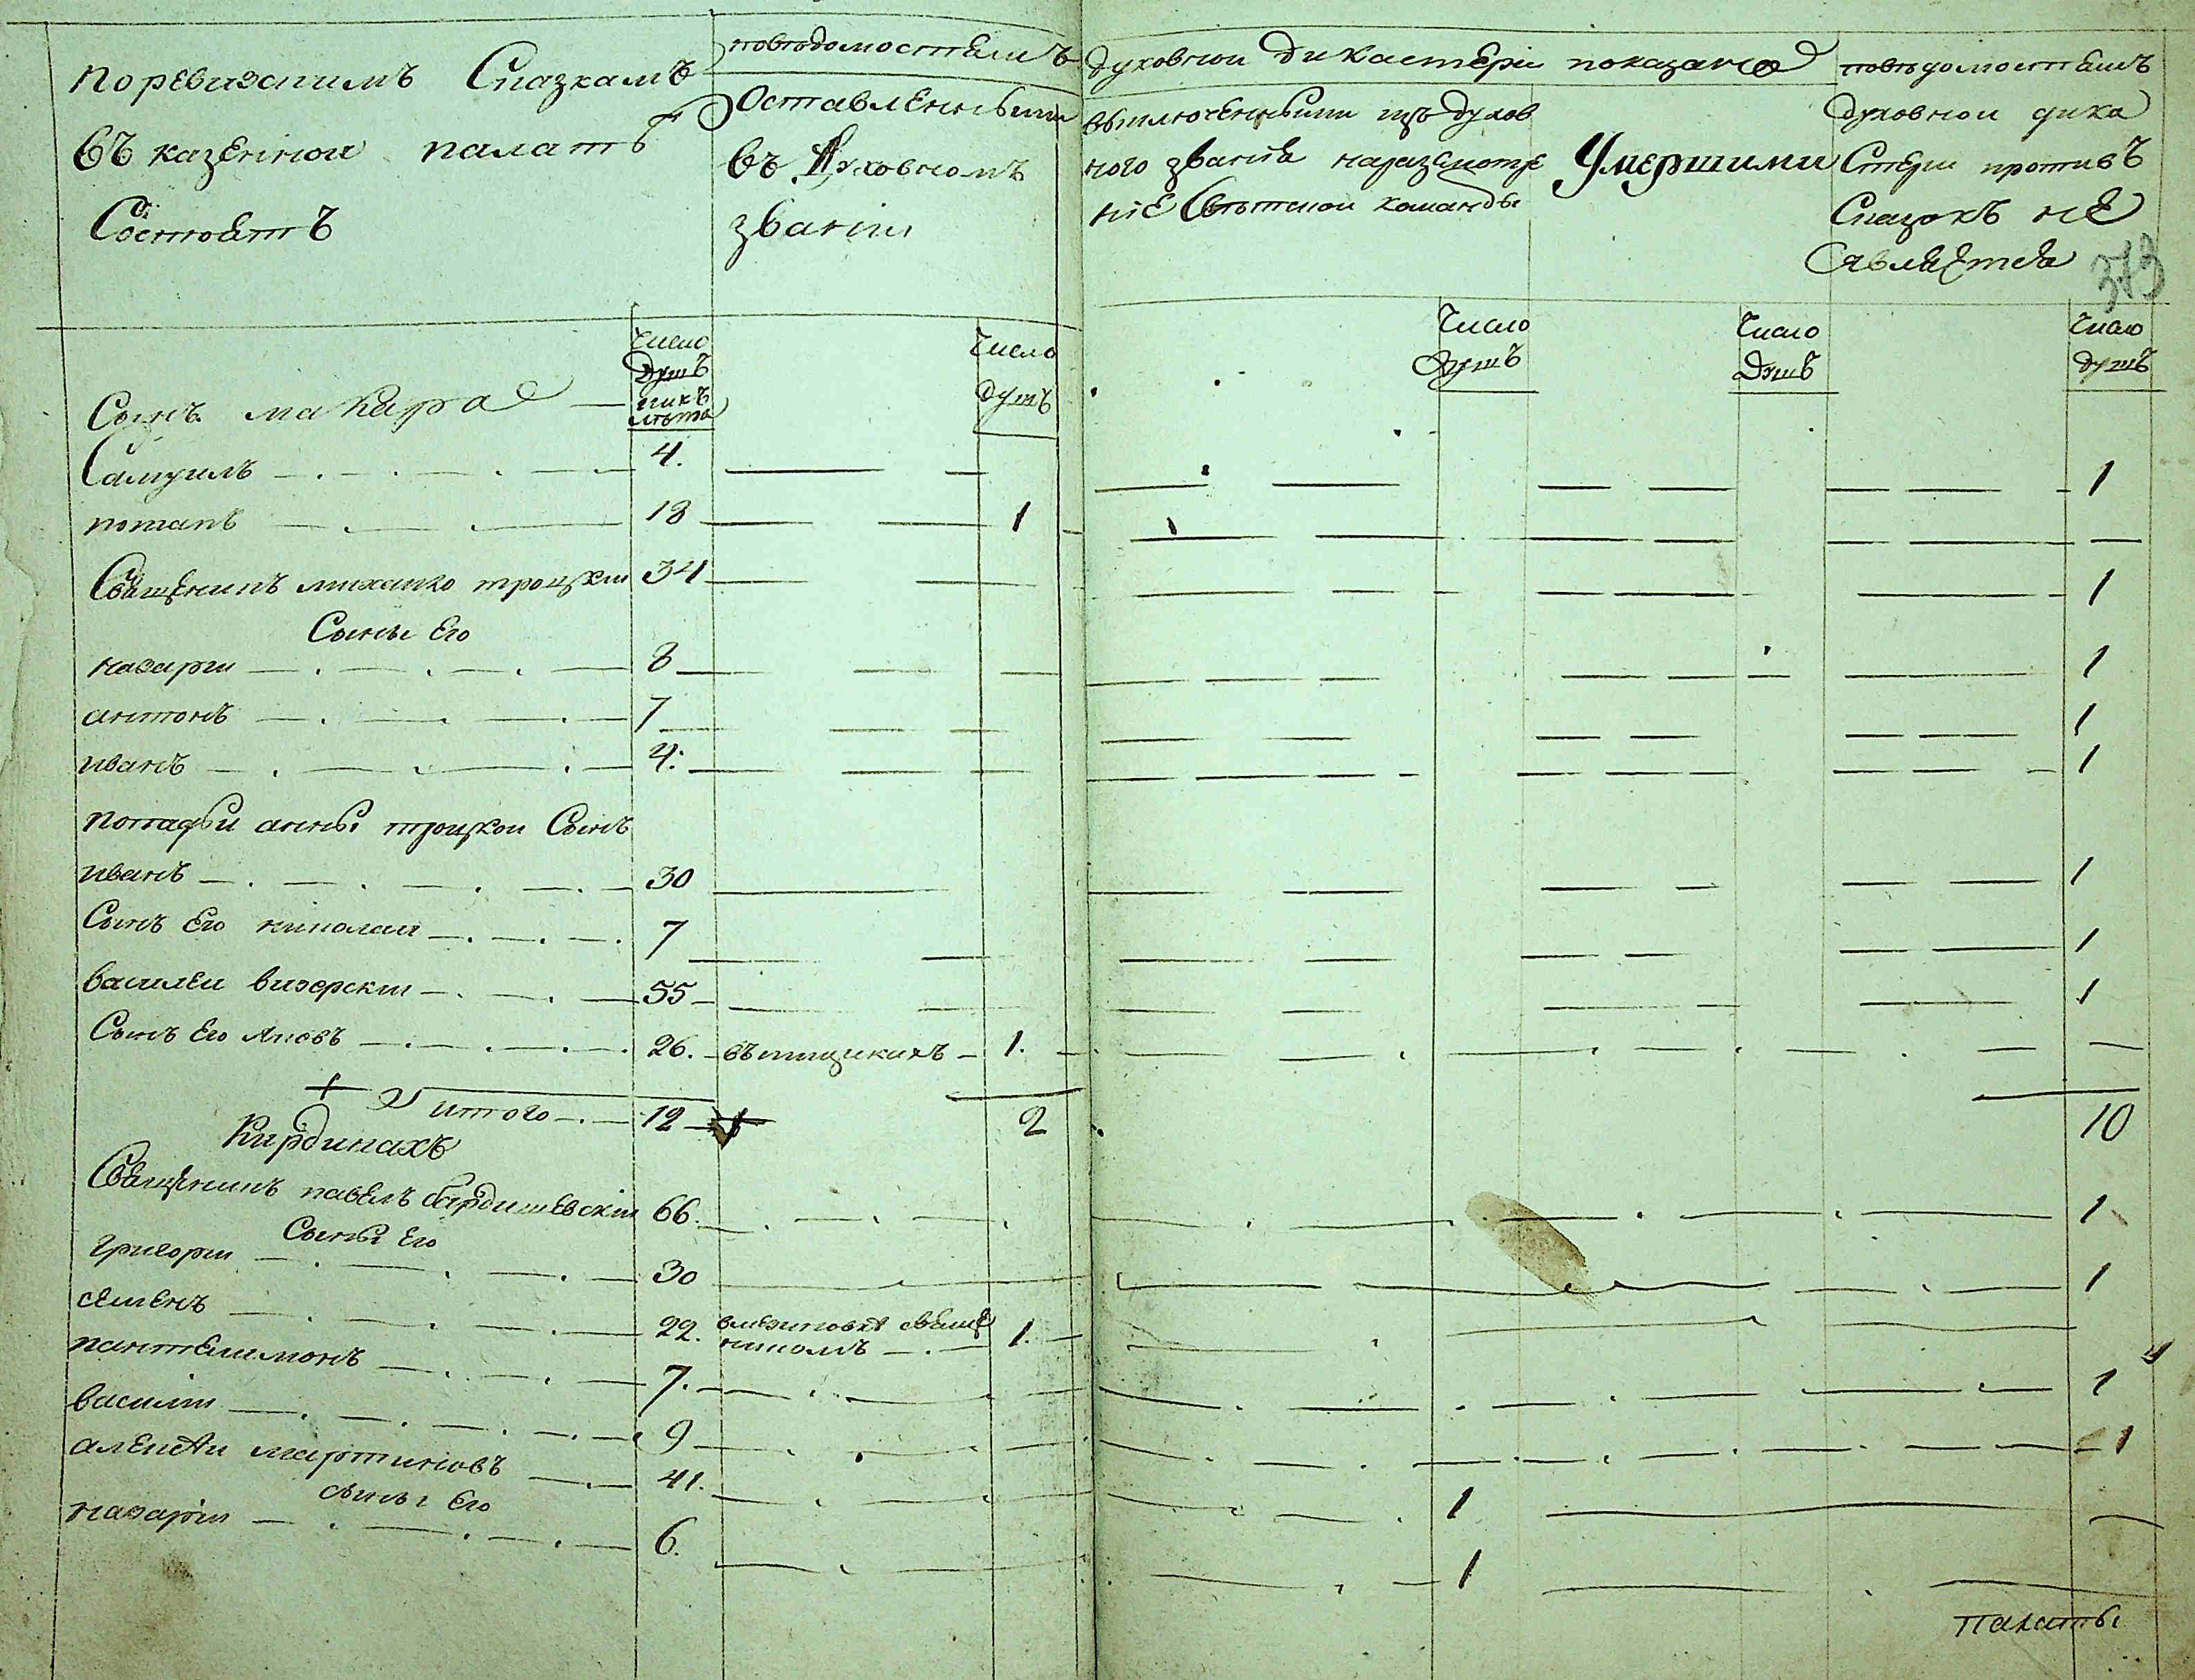 поревизснимъ Сказкамъ
въ казенной палатѣ
Состоитъ
повѣдомостямъ духовнои дикастерiи показано
Оставленными
въ Духовномъ
званiи
выключенными изъ духов
ного званiя наразсмотре
нiе Свѣтской команды
Умершими
повѣдомостямъ
духовнои дика
стерiи противъ
Сказокъ не
Является
373
Число
Душъ
ихъ
лѣта
Число
душъ
Число
душъ
Число
душъ
Число
душъ
Сынъ макара
Самуилъ 4. 1
потапъ 18 1
Священикъ михаико троцкiи 34 1
Сыны Его
назарiи 8 1
антонъ 7 1
иванъ 4. 1
попадьи анны троцкои Сынъ
иванъ 30 1
Сынъ Его николаи 7 1
василеи визерскiи 55 1
Сынъ Его Яковъ 26. въ ящикахъ 1.
итого 12 2 10
Кирдинахъ
Священикъ павелъ бардишевскiи 66. 1
Сыны Его
григорiи 30 1
семенъ 22. свяще
никомъ 1.
пантелимонъ 7. 1
василiи 9 1
алексѣи мартиновъ 41. 1
сыны Его
назарiи 6. 1
палаты